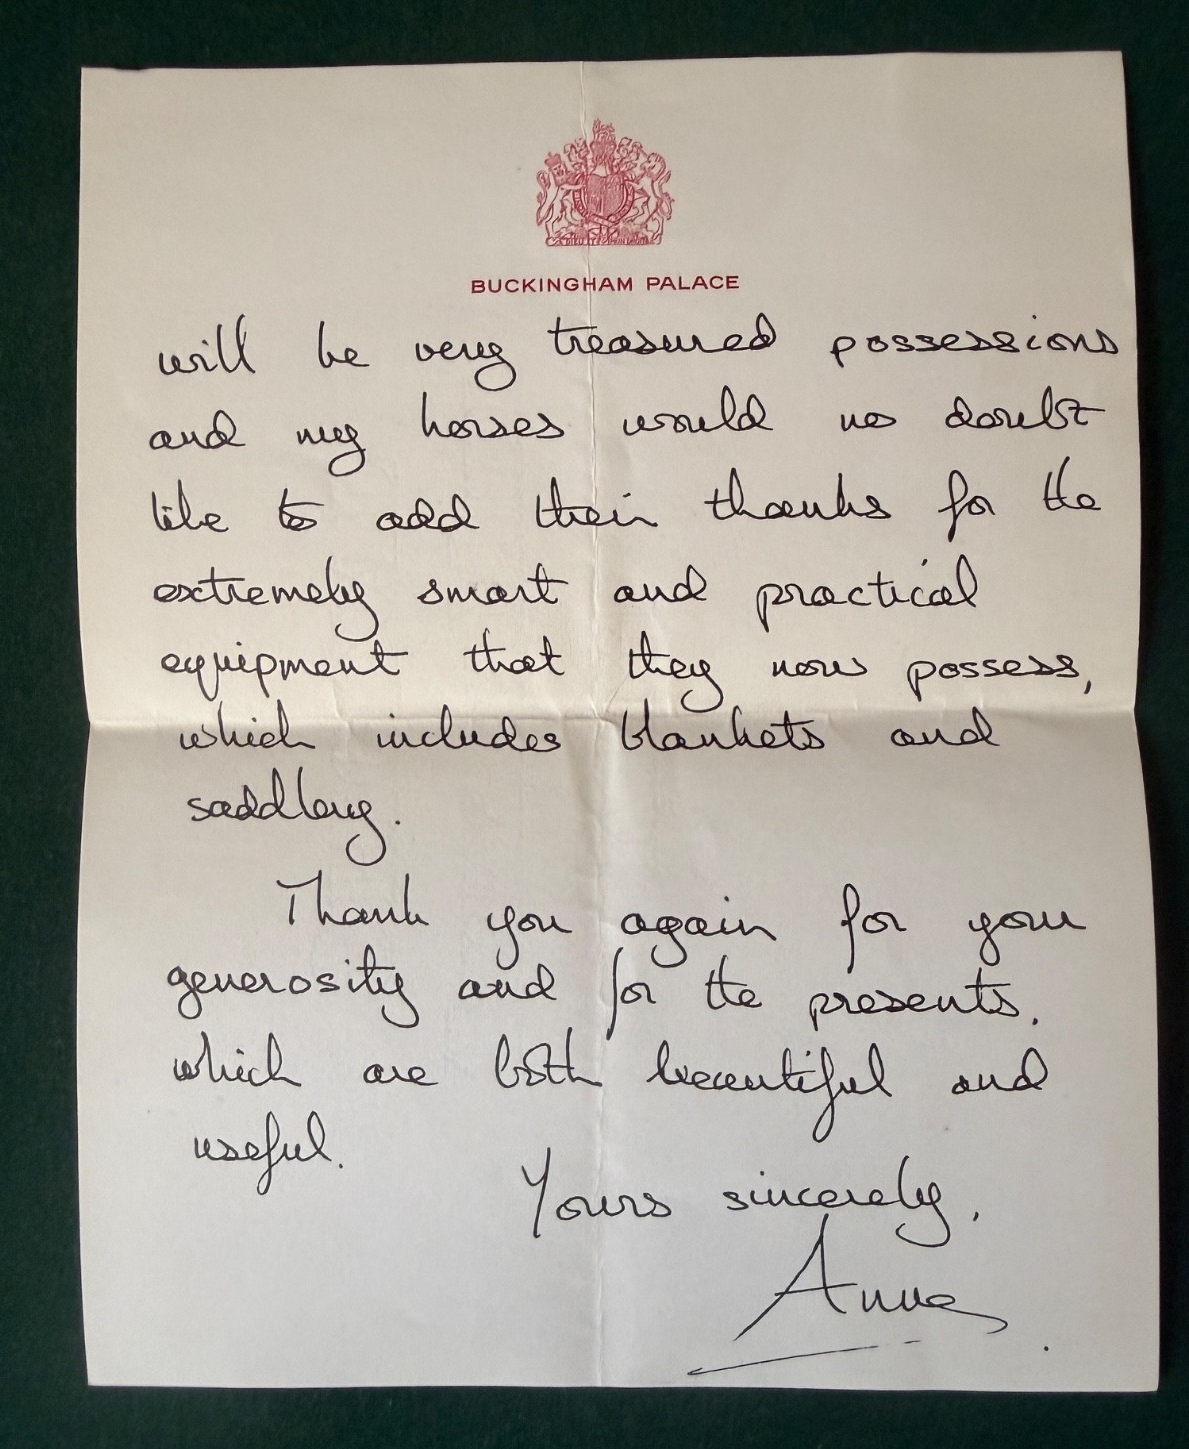 BUCKINGHAM PALACE
will be very treasured possessions
and my horses would no doubt
like to add their thanks for the
extremely smart and practical
equipment that they now possess,
which includes blankets and
saddlery.
Thank you again for your
generosity and for the presents.
which are both beautiful and
useful.
Yours sincerely,
Anne